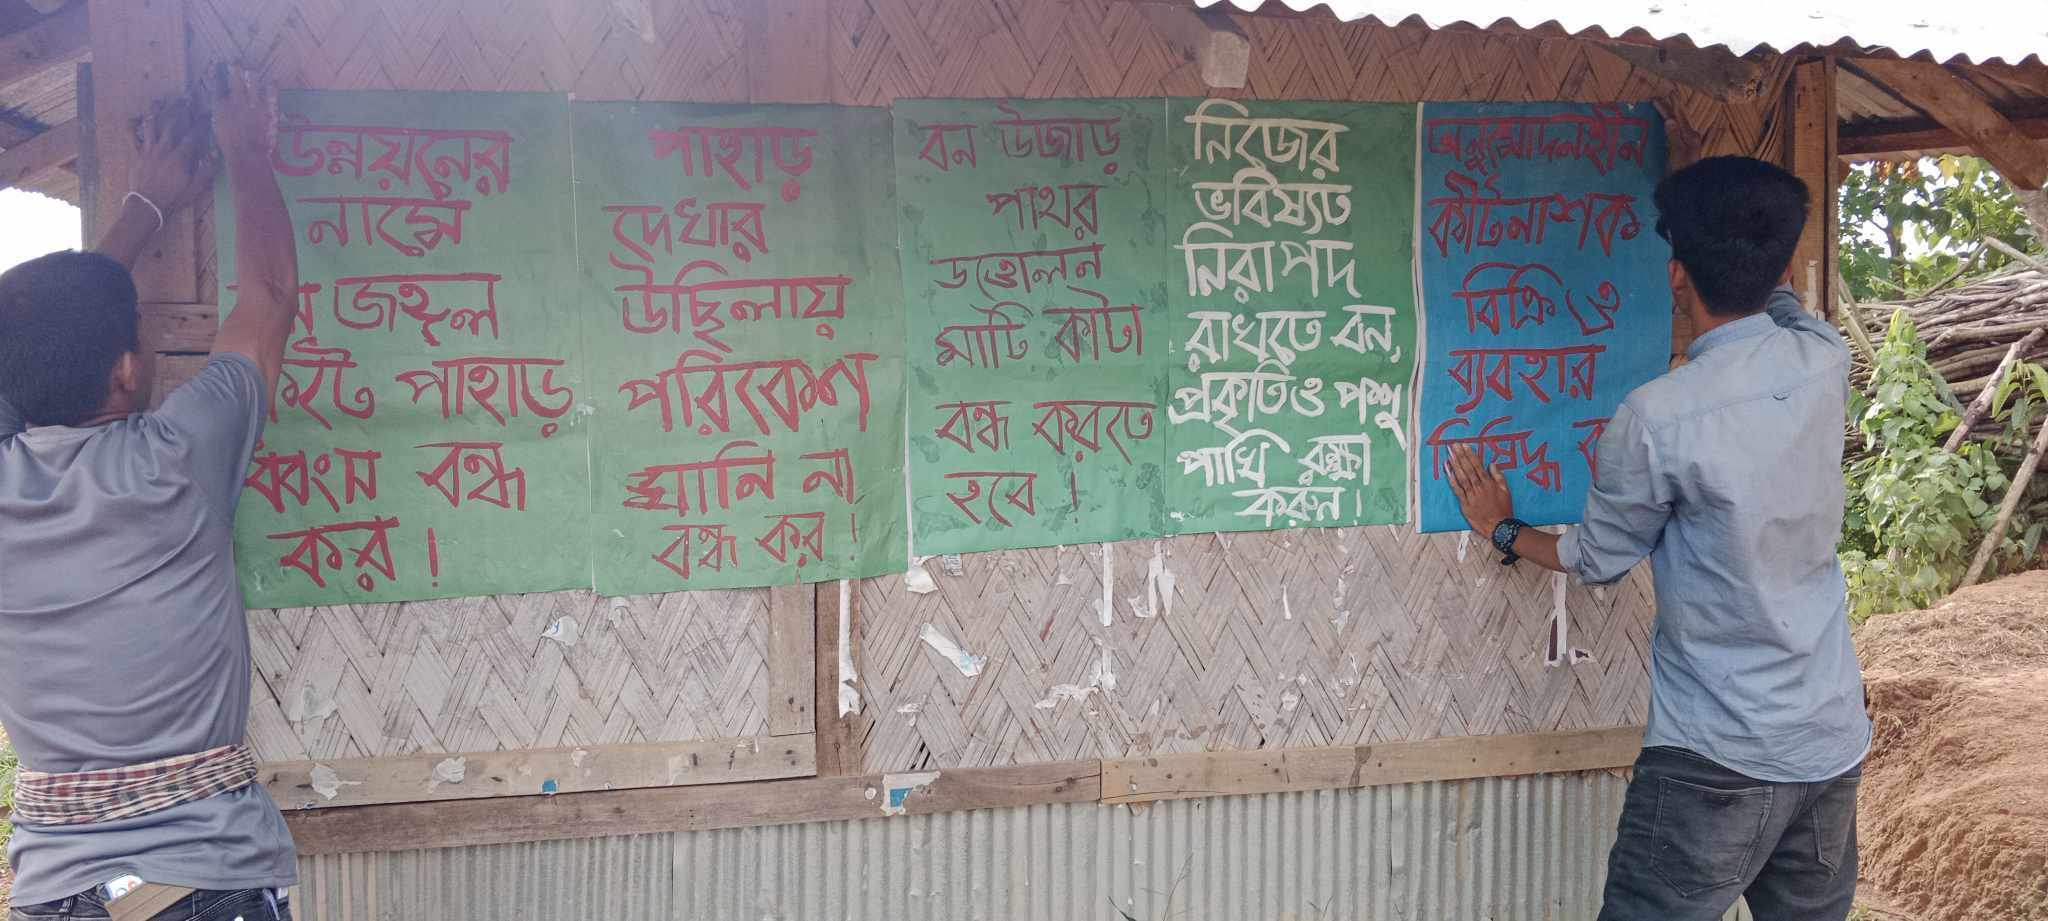 উন্নয়নের
নামে
জঙ্গল
পাহাড়
ধ্বংস বন্ধ
কর!
পাহাড়
দেখার
উছিলায়
পরিবেশ
না
বন্ধ কর!
বন উজাড়
পাথর
উত্তোলন
মাটি কাটা
বন্ধ করতে
হবে!
নিজের
ভবিষ্যত
নিরাপদ
রাখতে বন,
প্রকৃতি ও পশু
পাখি রক্ষা
করুন!
অনুমোদনহীন
কীটনাশক
বিক্রি ও
ব্যবহার
নিষিদ্ধ